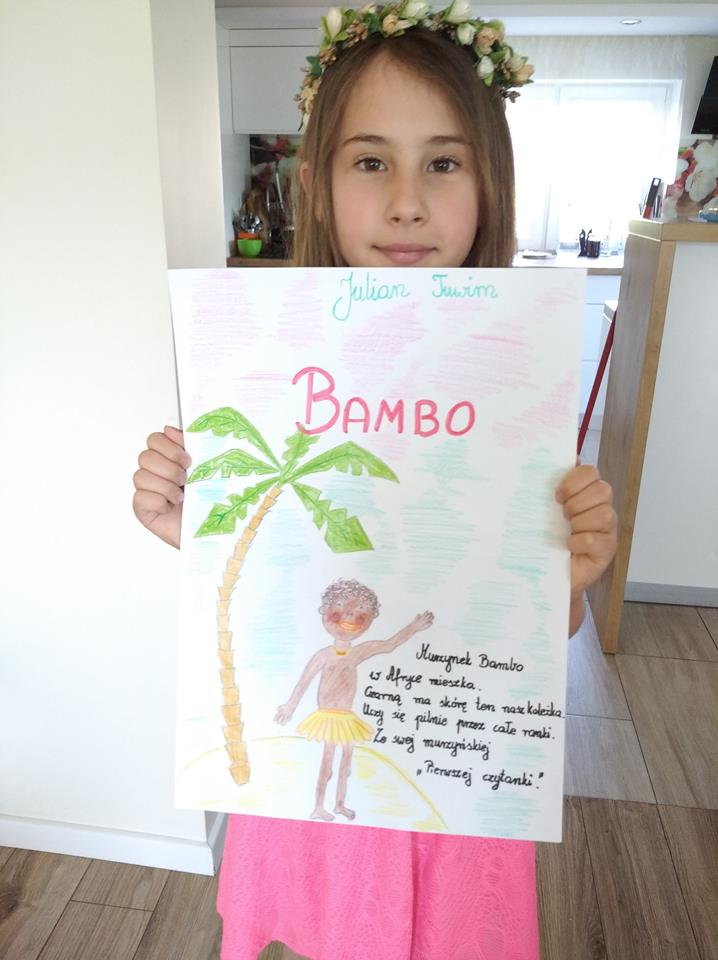 Julian Tuwim
BAMBO
Murzynek Bambo
w Afryce mieszka.
Czarną ma skórę ten nasz koleżka.
Uczy się pilnie przez całe ranki.
Ze swej murzyńskiej
„Pierwszej czytanki."